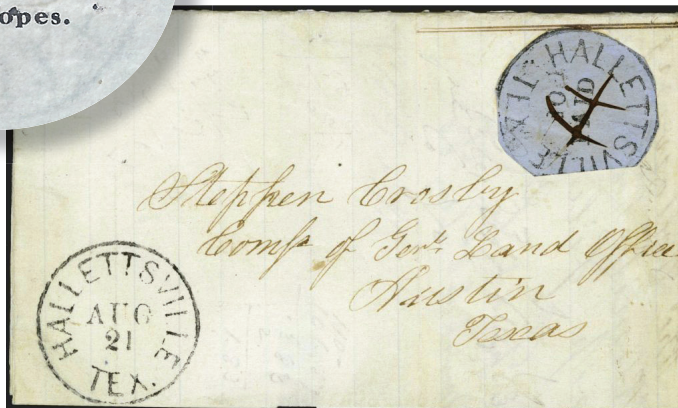 opes.
HALLETTSVILLE TEX.
PAID
Stephen Crosby
Com^r of Gen^l Land Office
Austin
Texas
HALLETTSVILLE
AUG
21
TEX.